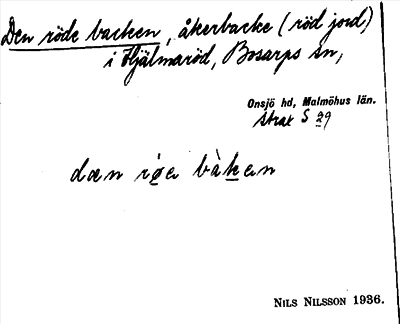 Den röde backen, åkerbacke (röd jord)
i Hjälmaröd, Bosarps sn,
Onsjö hd, Malmöhus län.
strax S 29
dæn røa bàkan
NILS NILSSON 1936.